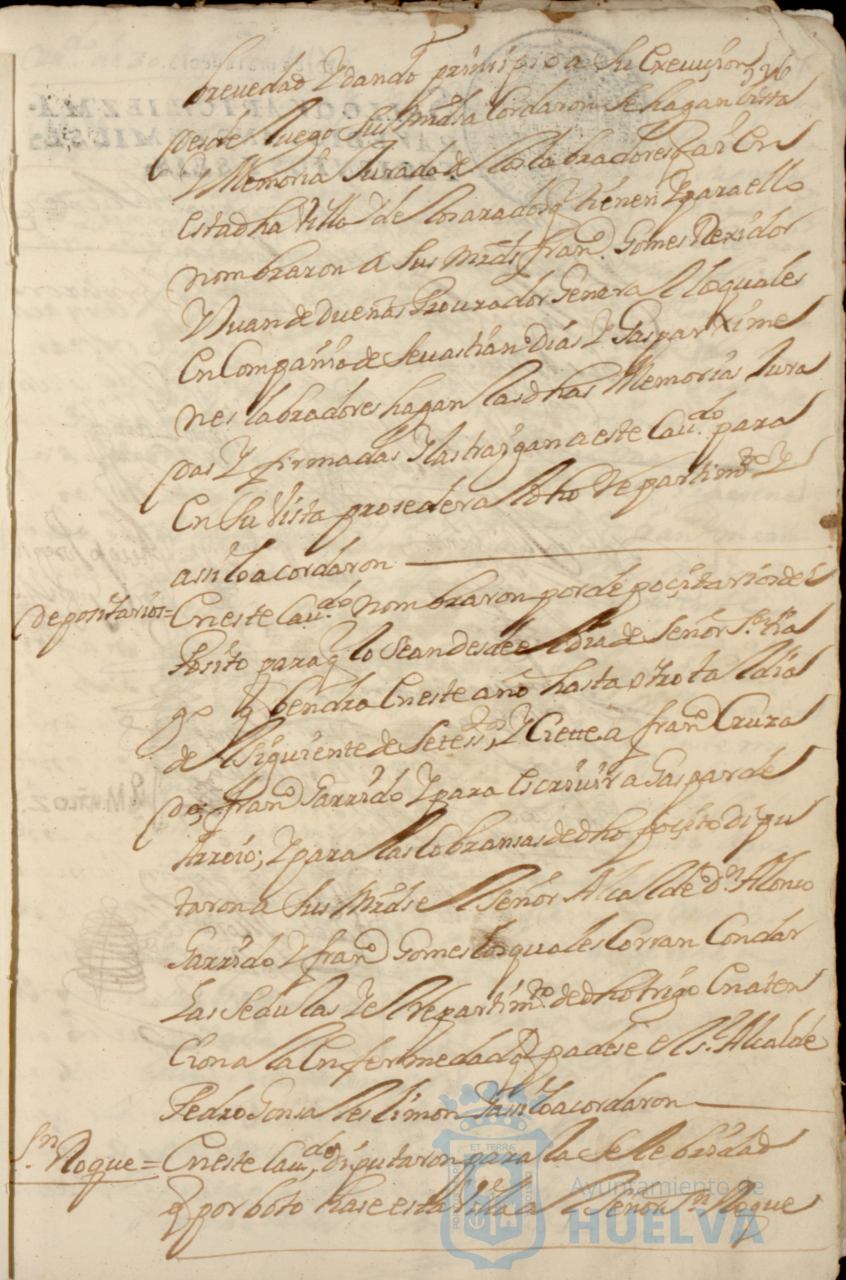 brevedad Y dando prinsipio a Su Execuçion
desde luego Sus mrds acordaron Se hagan Lista
Y Memoria Jurado de los labradores q ai En
esta dha Villa Y de los arados q tienen Y para ello
nombraron a Sus mrds fran.co Gomes Rexidor
Y Juan de dueñas Procurador General los quales
En Compañia de Sevastian Dias Y Gaspar Xime
nes labradores hagan las dhas Memorias Jura
das Y firmadas Y las traigan a este Cau.do para
En Su Vista proseder al dho repartim.to Y
assi lo acordaron
Depositarios= En este Cau.do nombraron por depoçitarios del
Posito para q lo sean desde el dia de Señor S.n tia
go q bendra En este año hasta otro tal dia
de el Siguiente de Setess.os Y Ciette a fran.co Cruza
do, fran.co Garrido Y para escriuir a Gaspar de
Arroio; Y para las Cobransas de dho poçito dipu
taron a Sus Mrds el Señor Alcalde D.n Alonso
Garrido Y fran.co Gomes los quales Corran Con dar
Las Sedulas Y el repartim.to de dho trigo En aten
Cion a la Enfermedad q padese el S.r Alcalde
Pedro Gonsales limon Y assi lo acordaron
S.n Roque= En este Cau.do diputaron para la Selebridad
q por boto hase esta Villa al Señor S.n Roque
Ayuntamiento de
HUELVA